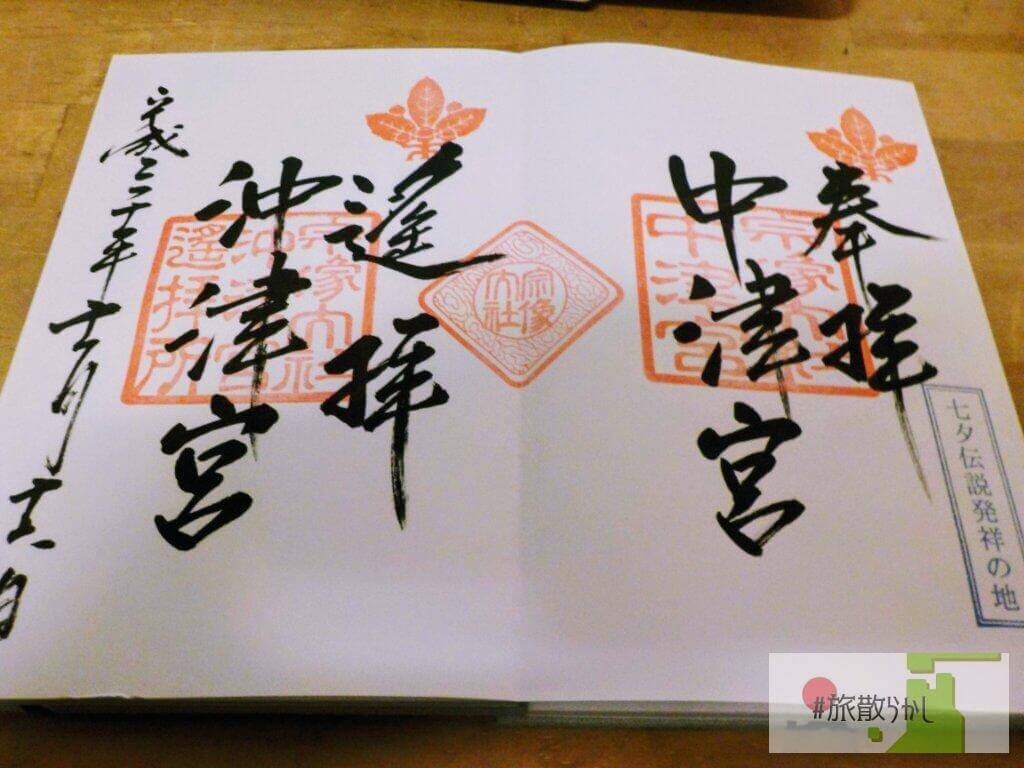 七夕伝説発祥の地
奉拝
中津宮
宗像大社
中津宮
宗像大社
遥拝
沖津宮
宗像大社
沖津宮
遙拝所
平成三十年十一月
#旅散らかし